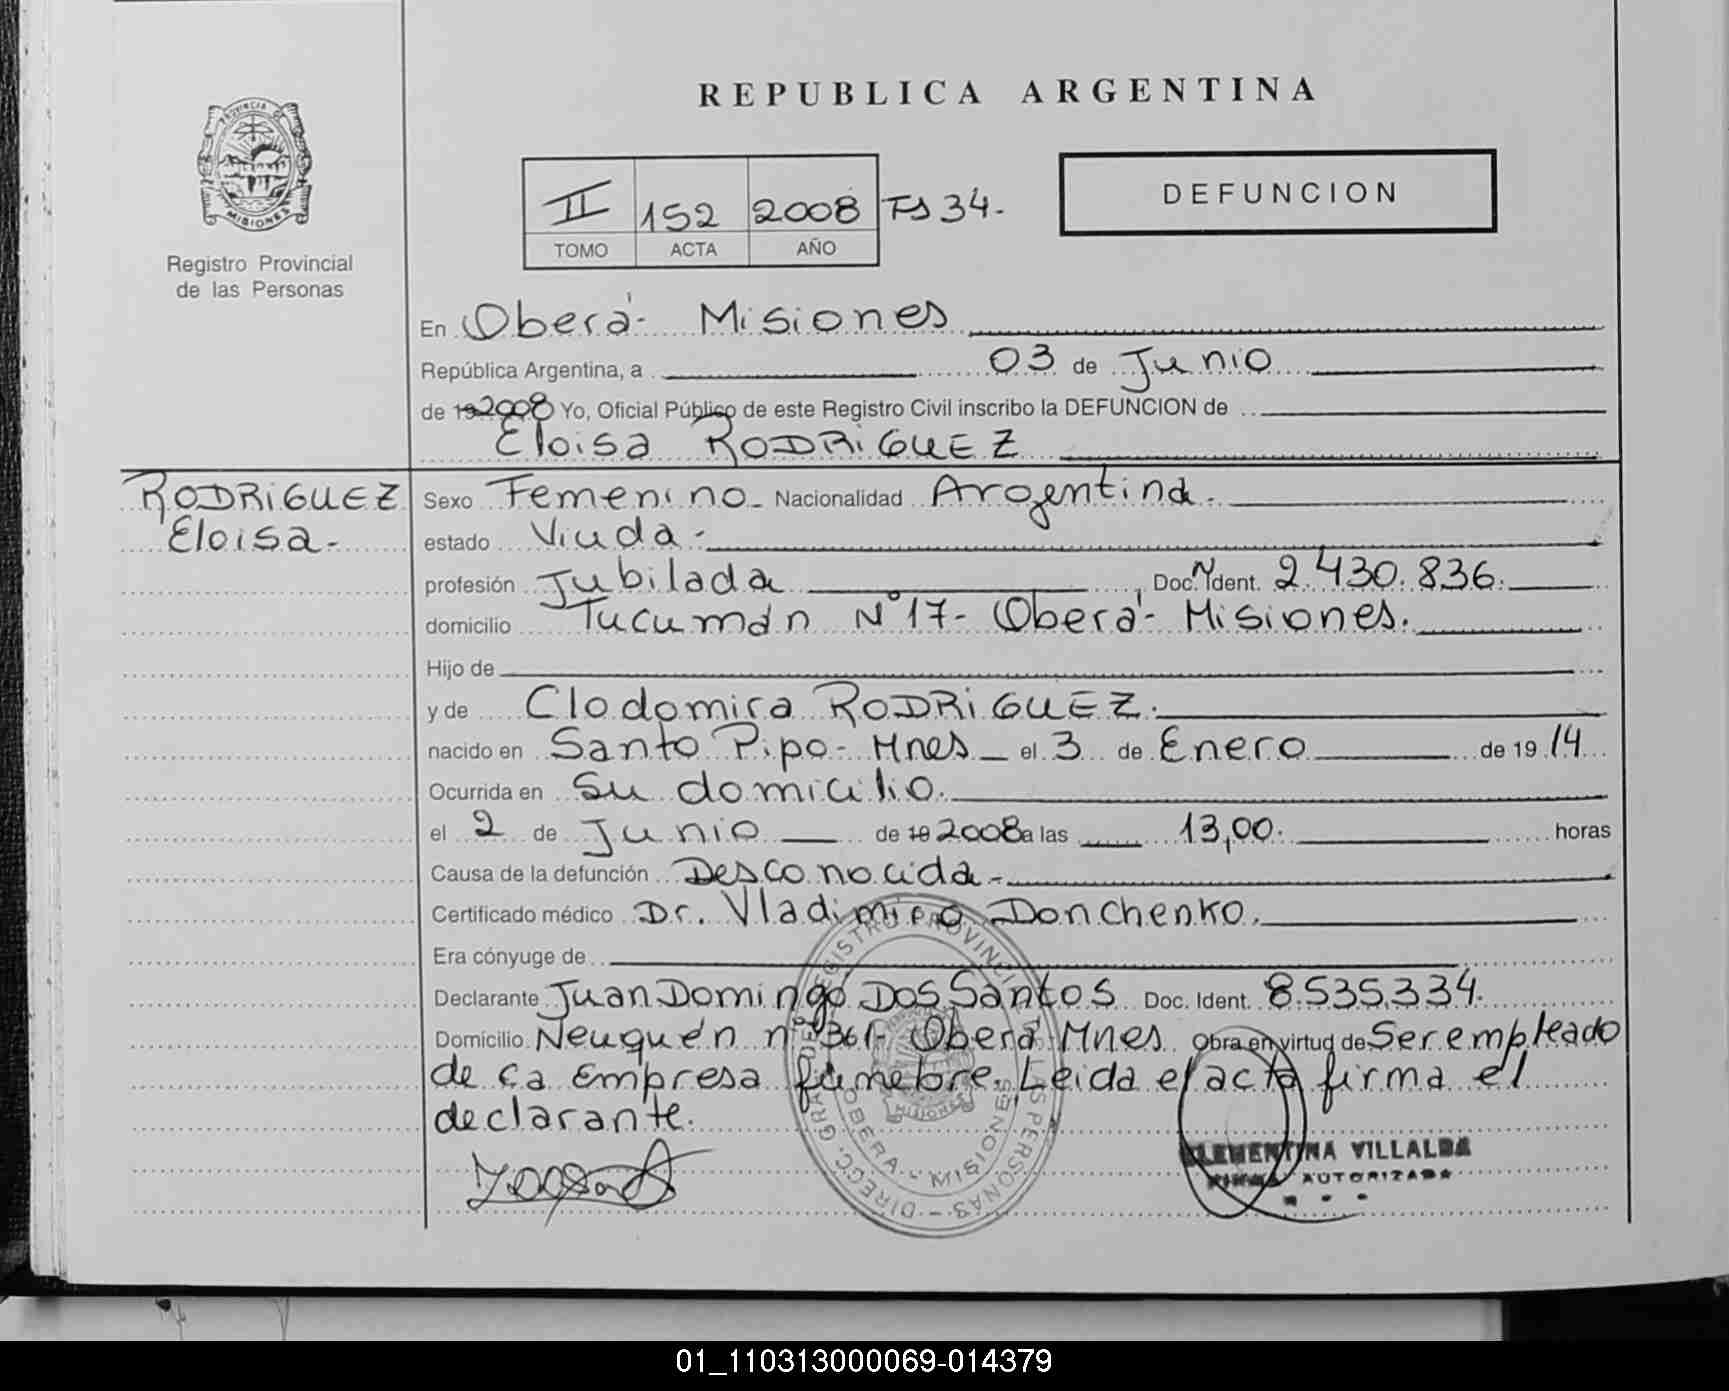 REPUBLICA ARGENTINA
PROVINCIA
MISIONES
Registro Provincial
de las Personas
II 152 2008 Fs 34.-
TOMO ACTA AÑO
DEFUNCION
En Oberá- Misiones
República Argentina, a 03 de Junio
de 19 2008 Yo, Oficial Público de este Registro Civil inscribo la DEFUNCION de
Eloisa RODRIGUEZ
RODRIGUEZ
Eloisa.-
Sexo Femenino- Nacionalidad Argentina.
estado Viuda.-
profesión Jubilada, Doc. N Ident. 2.430.836.
domicilio Tucumán N° 17- Oberá- Misiones.
Hijo de
y de Clodomira RODRIGUEZ.
nacido en Santo Pipo- Mnes el 3 de Enero de 19 14
Ocurrida en su domicilio.
el 2 de Junio de 19 2008 a las 13,00. horas
Causa de la defunción Desconocida.-
Certificado médico Dr. Vladimiro Donchenko.
Era cónyuge de
Declarante Juan Domingo Dos Santos Doc. Ident. 8.535.334.
Domicilio Neuquén n° 361- Oberá- Mnes. Obra en virtud de Ser empleado
de la Empresa fúnebre. Leida el acta firma el
declarante.
DIRECC. GRAL. DEL REGISTRO PROVINCIAL DE LAS PERSONAS -
OBERA - MISIONES
MISIONES
CLEMENTINA VILLALBA
FIRMA AUTORIZADA
01_110313000069-014379